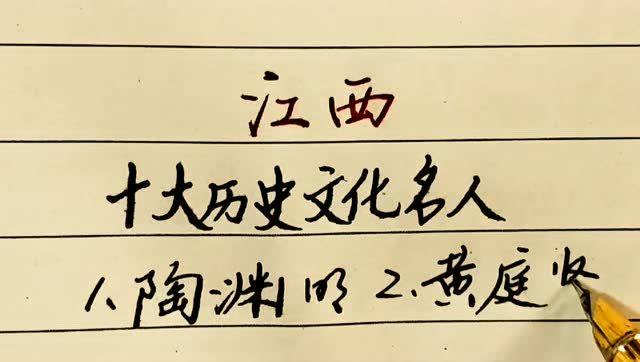 江西
十大历史文化名人
1、陶渊明 2、黄庭